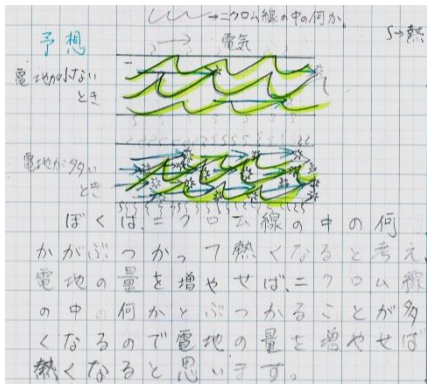 →ニクロム線の中の何か
予想
電気
S→熱
電地が少ない
とき
電地が多い
とき
ぼくは、ニクロム線の中の何
かがぶつかって熱くなると考え、
電地の量を増やせば、ニクロム線
の中の何かとぶつかることが多
くなるので電地の量を増やせば
熱くなると思います。